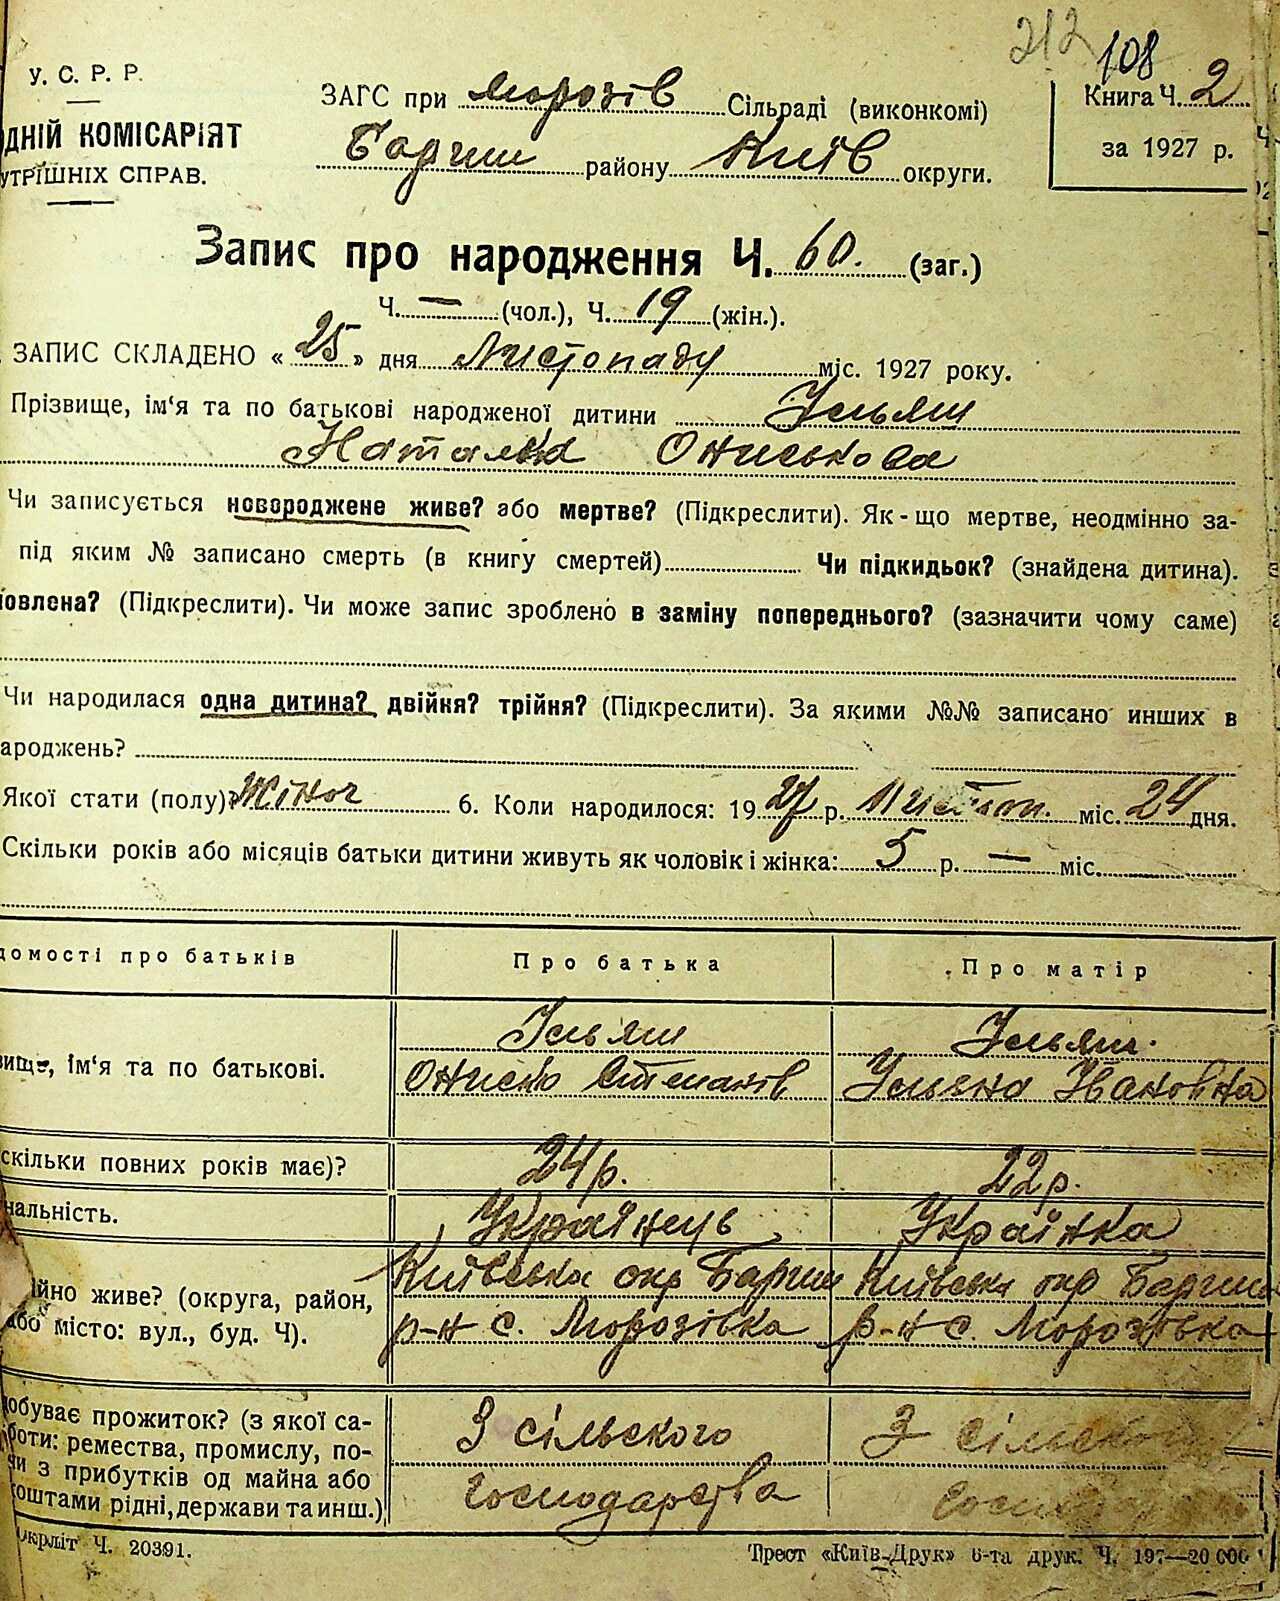 212
108
У. С. Р. Р.
ДНІЙ КОМІСАРІЯТ
УТРІШНІХ СПРАВ.
ЗАГС при Морозів Сільраді (виконкомі)
Баришів району Київ округи.
Книга Ч. 2
за 1927 р.
Запис про народження Ч. 60. (заг.)
Ч. — (чол.), Ч. 19 (жін.).
ЗАПИС СКЛАДЕНО « 25 » дня Листопаду міс. 1927 року.
Прізвище, ім‘я та по батькові народженої дитини Ільяш
Наталка Ониськова
Чи записується новороджене живе? або мертве? (Підкреслити). Як-що мертве, неодмінно за-
під яким № записано смерть (в книгу смертей) Чи підкидьок? (знайдена дитина).
овлена? (Підкреслити). Чи може запис зроблено в заміну попереднього? (зазначити чому саме)
Чи народилася одна дитина? двійня? трійня? (Підкреслити). За якими №№ записано инших в
ароджень?
Якої стати (полу)? Жіноч 6. Коли народилося: 19 27 р. Листоп. міс. 24 дня.
Скільки років або місяців батьки дитини живуть як чоловік і жінка: 5 р. — міс.
домості про батьків Про батька Про матір
Ільяш Ільяш.
вище, ім‘я та по батькові. Онисько Степанів Ульяна Івановна
скільки повних років має)? 24р. 22р.
нальність. Українець Українка
Київська окр Бариш Київська окр Бариш
ійно живе? (округа, район,
або місто: вул., буд. Ч). р-н с. Морозівка р-н с. Морозівка
обуває прожиток? (з якої са- З сільского З сільского
боти: ремества, промислу, по-
чи з прибутків од майна або господарства
оштами рідні, держави та инш.)
Окрліт Ч. 20391.
Трест «Київ-Друк» 6-та друк. Ч. 197—20 000